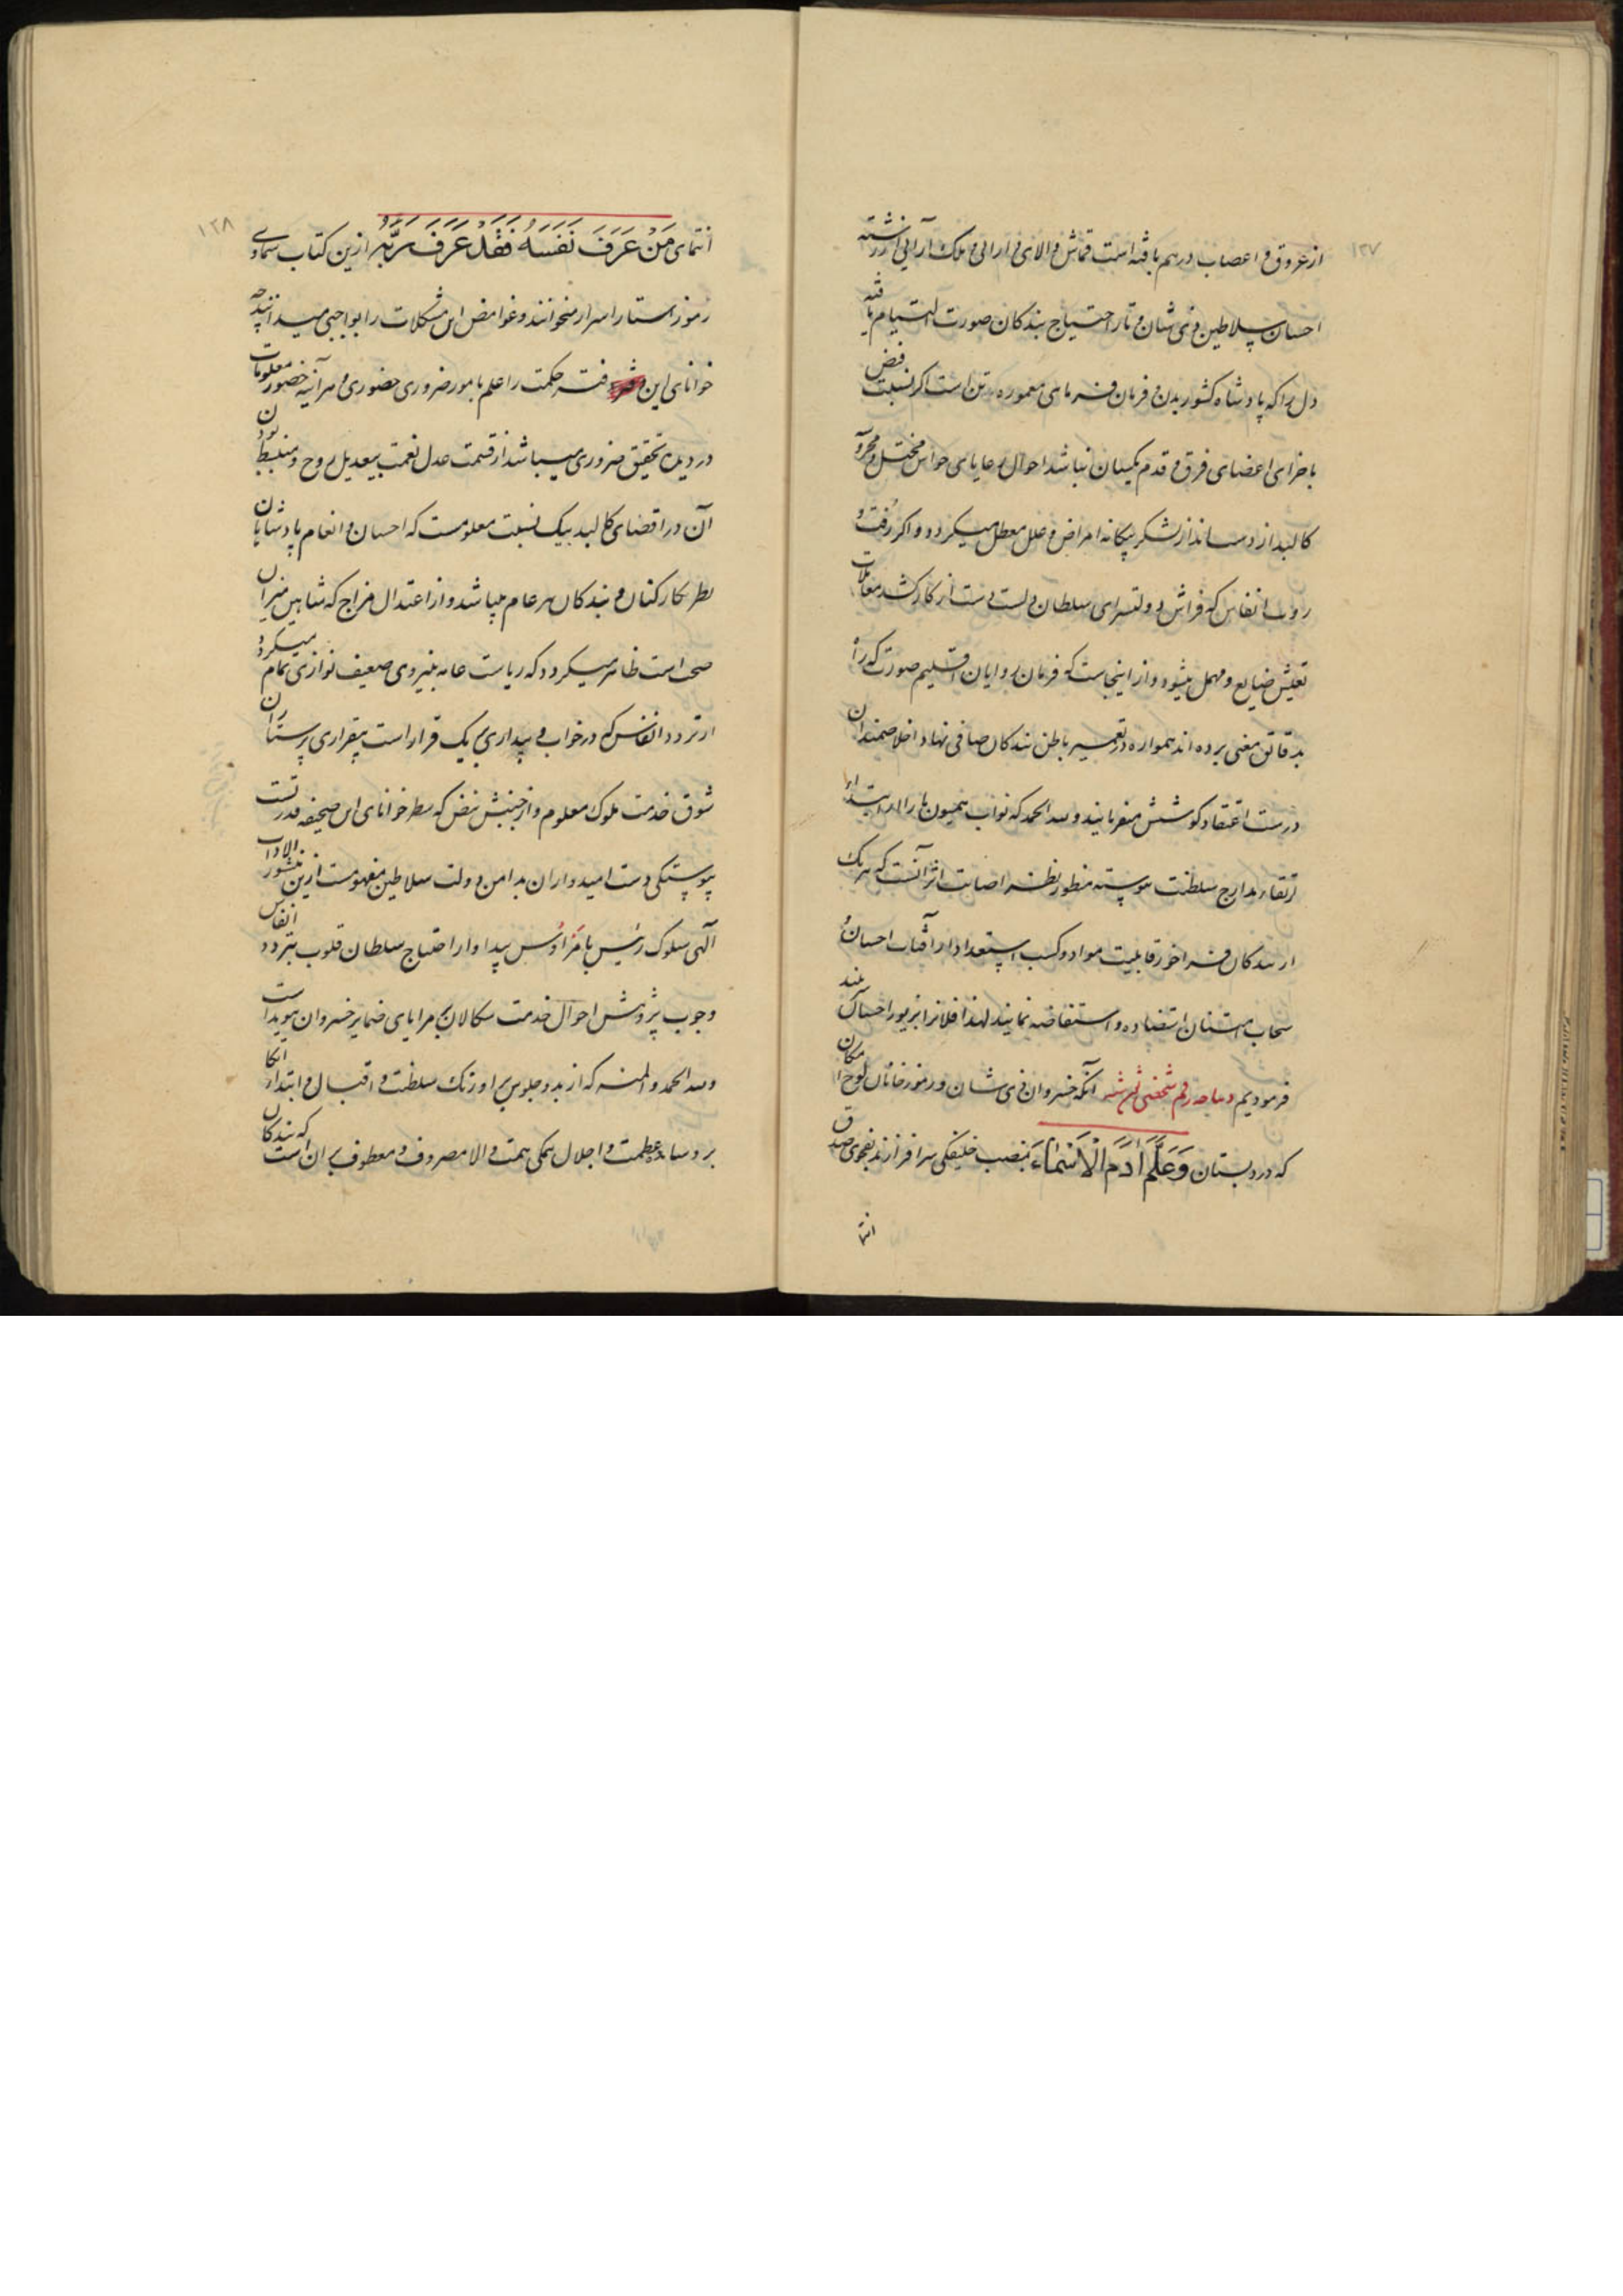 ۱۲۷
از عروق و اعصاب درهم بافته است قماش والای دارائی و ملک آرائی از رشته
احسان سلاطین ذی شان و تار احتیاج بندگان صورت التیام یافته
دل را که پادشاه کشور بدن و فرمان فرمای معموره تن است اگر نسبت فیض
باجزای اعضای فرق و قدم یکسان نباشد احوال رعایای حواس مختل و
کالبد از دست انداز لشکر بیگانه امراض و علل معطل میکردد و اگر رفت و
روب انفاس که فراش دولتسرای سلطان دلست دست از کار کشد معاملات
تعیش ضایع و مهمل میشود و از اینجاست که فرمان روایان اقلیم صورت که راه
بدقائق معنی برده اند همواره در تعمیر باطن بندکان صافی نهاد اخلاصمندان
درست اعتقاد کوشش میفرمایند و لله الحمد که نواب همیون ما را از ابتداء
ارتقاء مدارج سلطنت پیوسته منظور نظر اصابت اثر آنست که هر یک
از بندکان فراخور قابلیت مواد و کسب استعداد از آفتاب احسان و
سحاب امتنان استضاده و استفاضه نمایند لهذا فلانرا بزیور احسان
فرمودیم دیباجه رقم آنکه خسروان ذی شان و رموز خانان لوح امکان
که در دبستان وَعَلَّمَ آدَمَ الْاَسْمَاءَ بمنصب خلیفگی سرافرازند بفحوای صدق
انتما
۱۲۸
انتمای مَنْ عَرَفَ نَفْسَهُ فَقَدْ عَرَفَ رَبَّهُ ازین کتاب سماوی
رموز استار اسرار میخوانند و غوامض این مشکلات را بواجبی میدانند چه
خوانای این دفتر حکمت را علم بامور ضروری حضوری و هر آینه حضور معلومات
در دیده تحقیق ضروری میباشد از قسمت عدل نعمت بیعدیل روح و منبسط بودن
آن در اقضای کالبد بیک نسبت معلومست که احسان و انعام پادشاهان
بطر کارکنان و بندکان هر عام میباشد و از اعتدال مزاج که شاهین میزان
صحت است ظاهر میکردد که ریاست عامه بنیروی ضعیف نوازی تمام میکردد
از تردد انفاس که در خواب و بیداری بر یک قرار است بیقراری پرستاران
شوق خدمت ملوک معلوم و از جنبش نبض که سطر خوانای این صحیفه قدرتست
پیوستگی دست امیدواران بدامن دولت سلاطین مفهومست ازین منشور الاداب
آلهی سلوک رئیس با مرؤس پیدا و از احتیاج سلطان قلوب بتردد انفاس
وجوب پژوهش احوال خدمت سکالان بر مرایای ضمایر خسروان هویداست
و لله الحمد و المنه که از بدو جلوس بر اورنک سلطنت و اقبال و ابتدای اتکا
بر وساده عظمت و اجلال همکی همت والا مصروف و معطوف بر ان است که بندکان